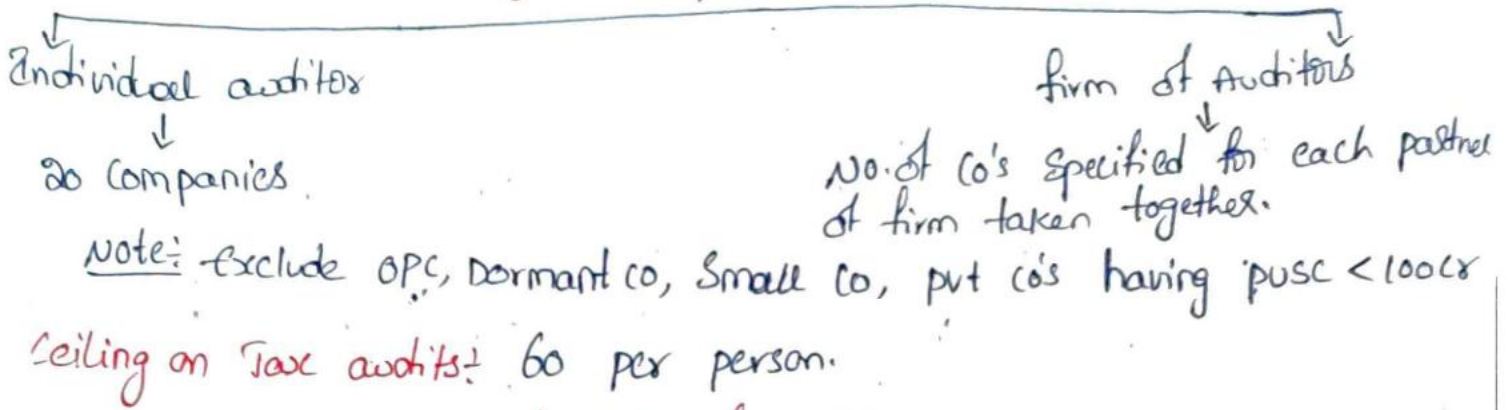 Individual auditor
firm of Auditors
20 Companies.
No. of Co's Specified for each partner
of firm taken together.
Note: Exclude OPC, Dormant co, Small Co, pvt co's having PUSC < 100cr
Ceiling on Tax audits: 60 per person.